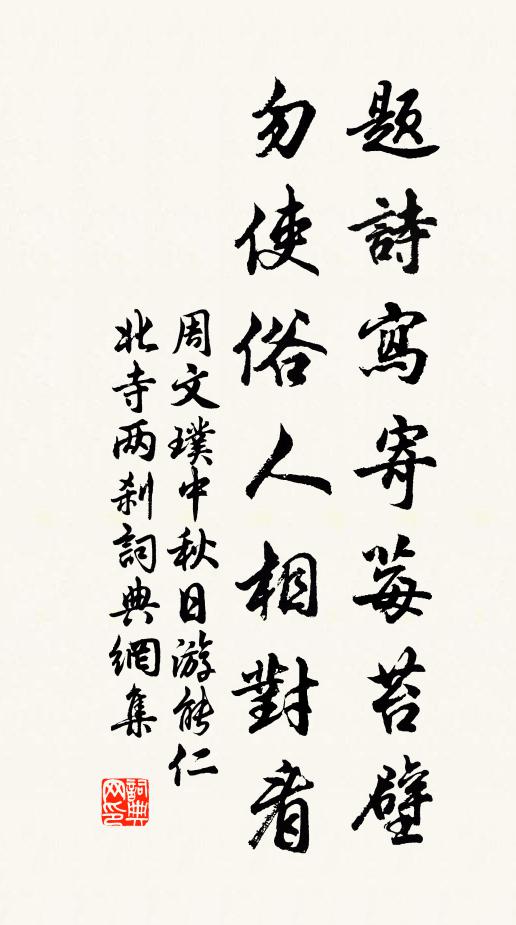 題詩寫寄莓苔壁
勿使俗人相對看
周文璞中秋日游能仁
北寺两剎詞典網集
詞典网印